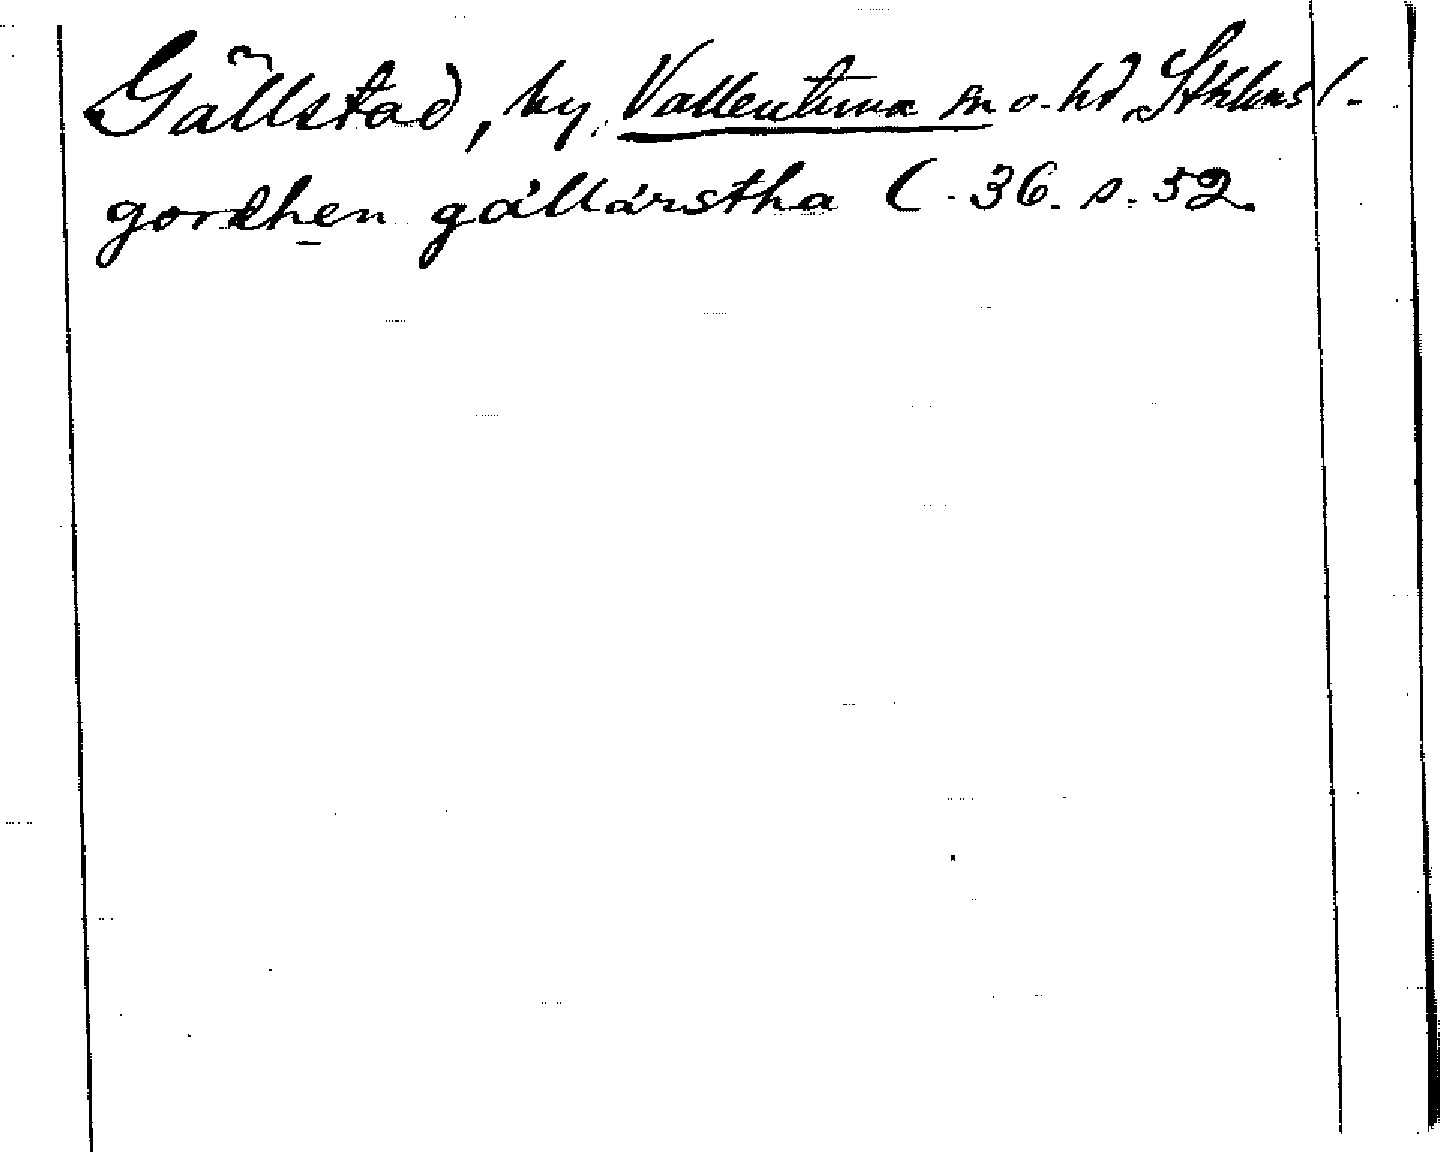 Gällstad, by, Vallentuna sn o. hd, Sthlms l.
gordhen gállárstha C. 36. s. 52.